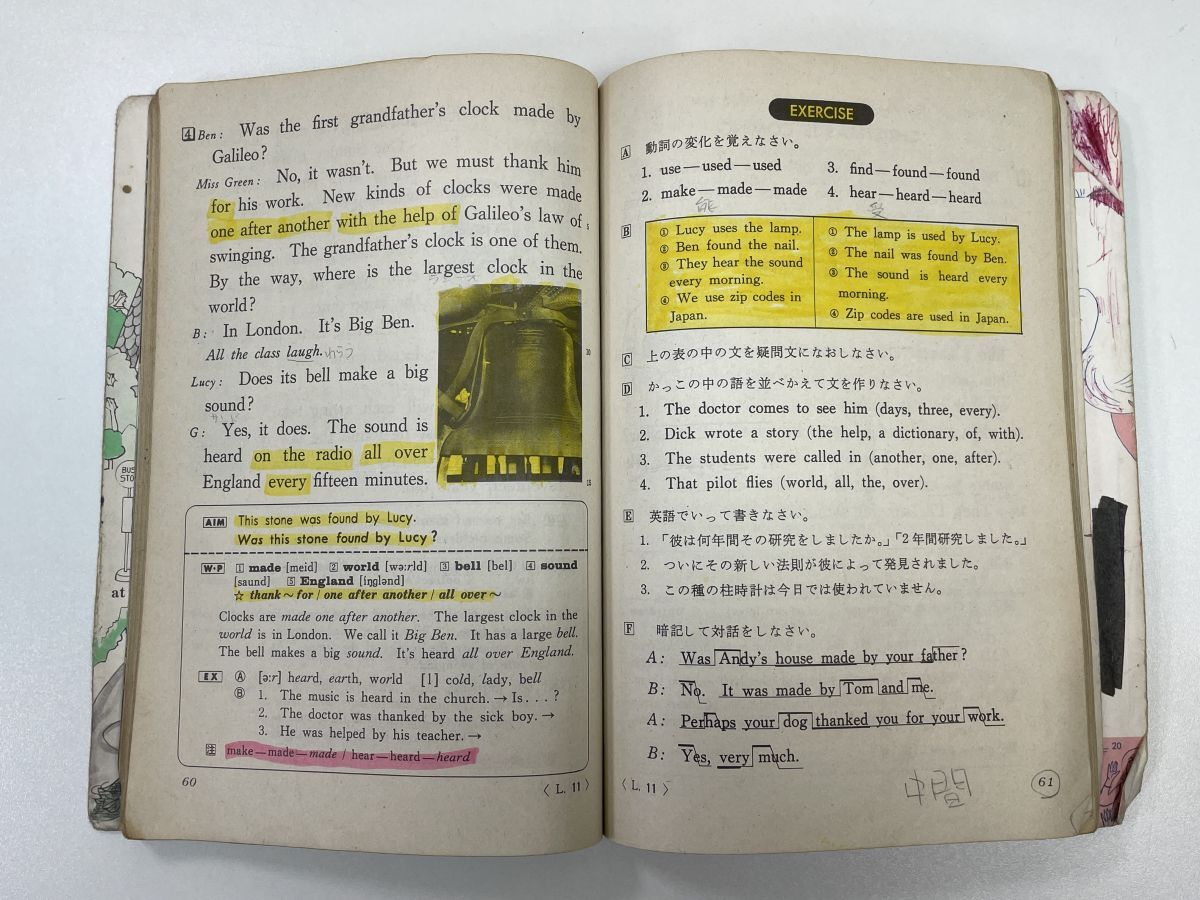 4 Ben: Was the first grandfather's clock made by
Galileo?
Miss Green: No, it wasn't. But we must thank him
for his work. New kinds of clocks were made
one after another with the help of Galileo's law of 5
swinging. The grandfather's clock is one of them.
By the way, where is the largest clock in the
world?
B: In London. It's Big Ben.
All the class laugh. わらう 10
Lucy: Does its bell make a big
sound?
G: Yes, it does. The sound is
heard on the radio all over
England every fifteen minutes. 15
AIM This stone was found by Lucy.
Was this stone found by Lucy?
W·P 1 made [meid] 2 world [wə:rld] 3 bell [bel] 4 sound
[saund] 5 England [iŋglənd]
☆ thank～for / one after another / all over～
Clocks are made one after another. The largest clock in the
world is in London. We call it Big Ben. It has a large bell.
The bell makes a big sound. It's heard all over England.
EX Ⓐ [ə:r] heard, earth, world [l] cold, lady, bell
Ⓑ 1. The music is heard in the church. → Is . . . ?
2. The doctor was thanked by the sick boy. →
3. He was helped by his teacher. →
注 make—made—made / hear—heard—heard
60
〈 L. 11 〉
EXERCISE
A 動詞の変化を覚えなさい。
1. use—used—used 3. find—found—found
2. make—made—made 4. hear—heard—heard
能 受
B ① Lucy uses the lamp.
② Ben found the nail.
③ They hear the sound
every morning.
④ We use zip codes in
Japan.
① The lamp is used by Lucy.
② The nail was found by Ben.
③ The sound is heard every
morning.
④ Zip codes are used in Japan.
C 上の表の中の文を疑問文になおしなさい。
D かっこの中の語を並べかえて文を作りなさい。
1. The doctor comes to see him (days, three, every).
2. Dick wrote a story (the help, a dictionary, of, with).
3. The students were called in (another, one, after).
4. That pilot flies (world, all, the, over).
E 英語でいって書きなさい。
1. 「彼は何年間その研究をしましたか。」「2年間研究しました。」
2. ついにその新しい法則が彼によって発見されました。
3. この種の柱時計は今日では使われていません。
F 暗記して対話をしなさい。
A: Was Andy's house made by your father?
B: No. It was made by Tom and me.
A: Perhaps your dog thanked you for your work.
B: Yes, very much.
中間
〈 L. 11 〉
61
BUS
STO
at
20